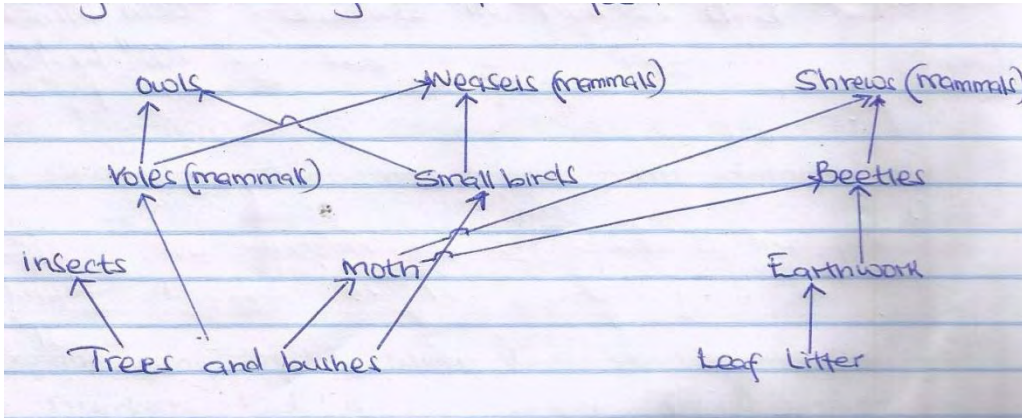 owls Weasels (mammals) Shrews (mammals)
Voles (mammals) Small birds Beetles
insects moth Earthwork
Trees and bushes Leaf Litter